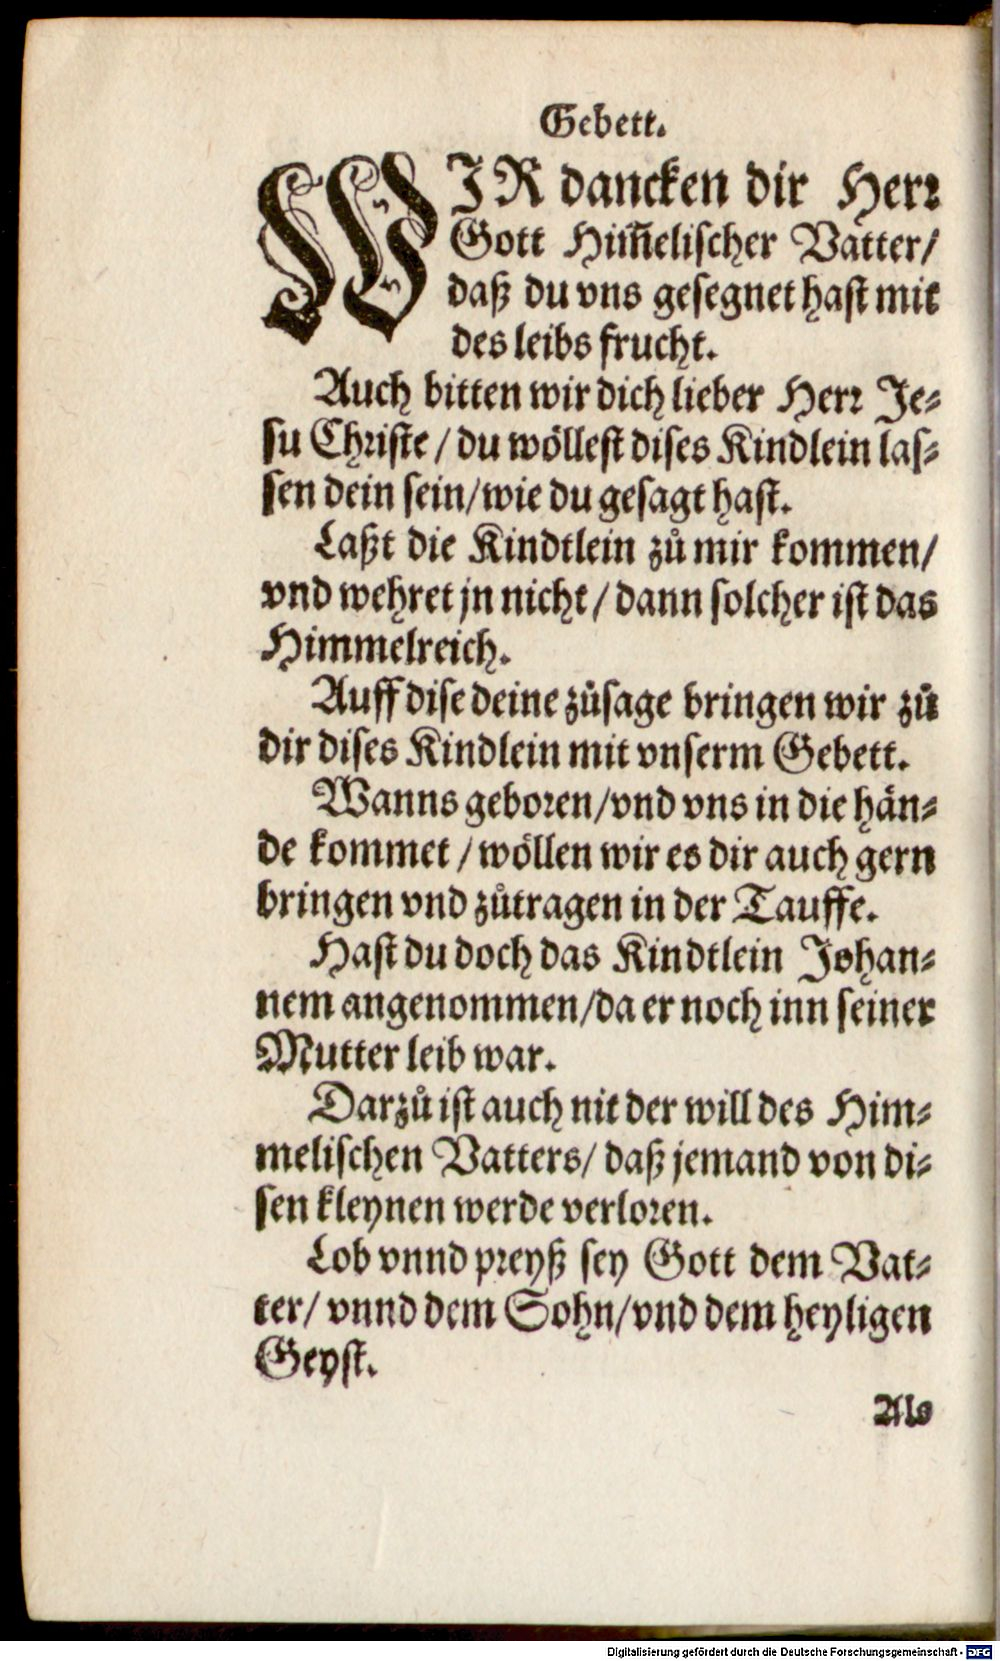 Gebett.
WJR dancken dir Herr
Gott Him̄elischer Vatter/
daß du vns gesegnet hast mit
des leibs frucht.
Auch bitten wir dich lieber Herr Je-
su Christe / du wöllest dises Kindlein las-
sen dein sein/ wie du gesagt hast.
Laßt die Kindtlein zů mir kommen/
vnd wehret jn nicht / dann solcher ist das
Himmelreich.
Auff dise deine zůsage bringen wir zů
dir dises Kindlein mit vnserm Gebett.
Wanns geboren/vnd vns in die hän-
de kommet / wöllen wir es dir auch gern
bringen vnd zůtragen in der Tauffe.
Hast du doch das Kindtlein Johan-
nem angenommen/da er noch inn seiner
Mutter leib war.
Darzů ist auch nit der will des Him-
melischen Vatters/ daß jemand von di-
sen kleynen werde verloren.
Lob vnnd preyß sey Gott dem Vat-
ter/ vnnd dem Sohn/vnd dem heyligen
Geyst.
Als
Digitalisierung gefördert durch die Deutsche Forschungsgemeinschaft - DFG